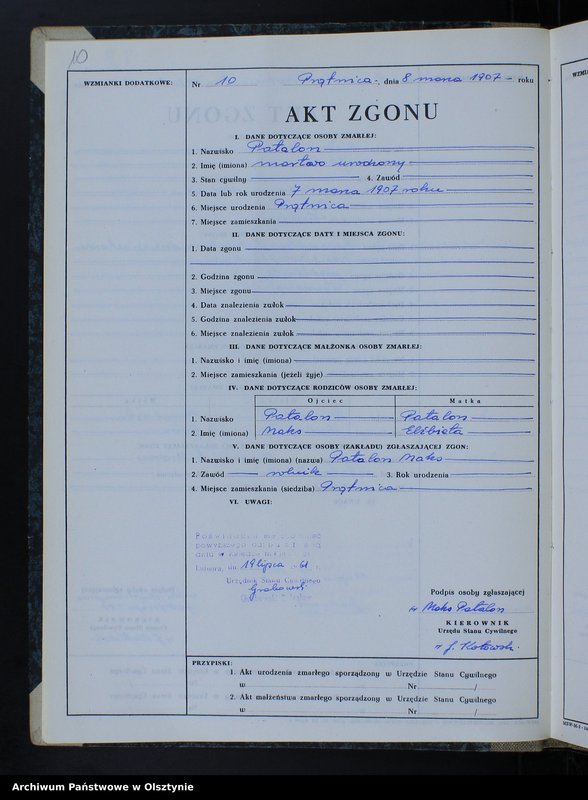 10
WZMIANKI DODATKOWE:
Nr 10 Prątnica, dnia 8 marca 1907 roku
AKT ZGONU
I. DANE DOTYCZĄCE OSOBY ZMARŁEJ:
1. Nazwisko Patalon
2. Imię (imiona) martwo urodzony
3. Stan cywilny 4. Zawód
5. Data lub rok urodzenia 7 marca 1907 roku
6. Miejsce urodzenia Prątnica
7. Miejsce zamieszkania
II. DANE DOTYCZĄCE DATY I MIEJSCA ZGONU:
1. Data zgonu
2. Godzina zgonu
3. Miejsce zgonu
4. Data znalezienia zwłok
5. Godzina znalezienia zwłok
6. Miejsce znalezienia zwłok
III. DANE DOTYCZĄCE MAŁŻONKA OSOBY ZMARŁEJ:
1. Nazwisko i imię (imiona)
2. Miejsce zamieszkania (jeżeli żyje)
IV. DANE DOTYCZĄCE RODZICÓW OSOBY ZMARŁEJ:
Ojciec Matka
1. Nazwisko Patalon Patalon
2. Imię (imiona) Maks Elżbieta
V. DANE DOTYCZĄCE OSOBY (ZAKŁADU) ZGŁASZAJĄCEJ ZGON:
1. Nazwisko i imię (imiona) (nazwa) Patalon Maks
2. Zawód rolnik 3. Rok urodzenia
4. Miejsce zamieszkania (siedziba) Prątnica
VI. UWAGI:
19 lipca 61 r.
Urzędnik Stanu Cywilnego
Grabowski
Podpis osoby zgłaszającej
Maks Patalon
KIEROWNIK
Urzędu Stanu Cywilnego
PRZYPISKI:
1. Akt urodzenia zmarłego sporządzony w Urzędzie Stanu Cywilnego
w Nr /
2. Akt małżeństwa zmarłego sporządzony w Urzędzie Stanu Cywilnego
w Nr /
Archiwum Państwowe w Olsztynie